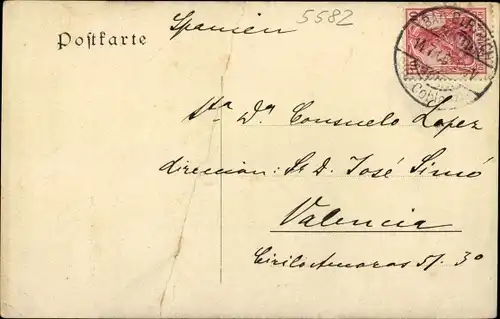 Spanien
5582
Postkarte
Sta Dª Consuelo Lopez
direccion: Sr D. José Simó
Valencia
Cirilo Amoros 5/. 3º